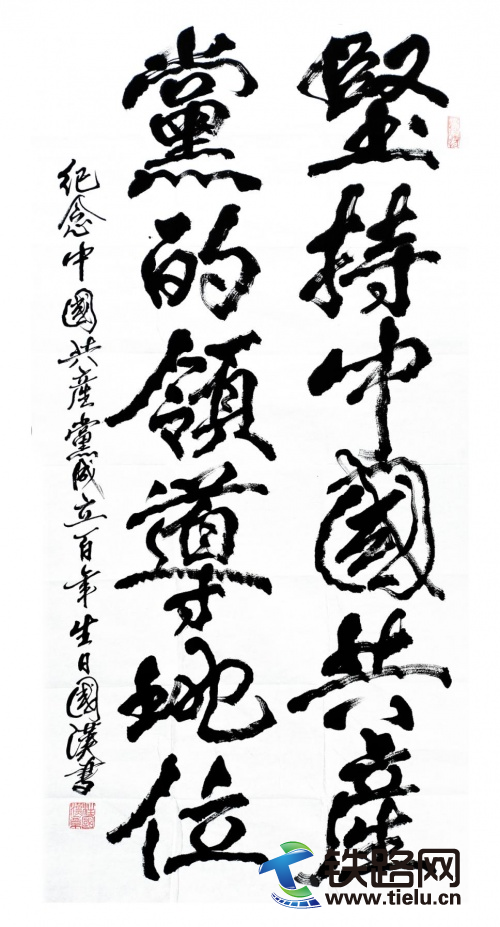 堅持中國共産
黨的領導地位
纪念中國共產黨成立百年生日國漢書
铁路网
www.tielu.cn